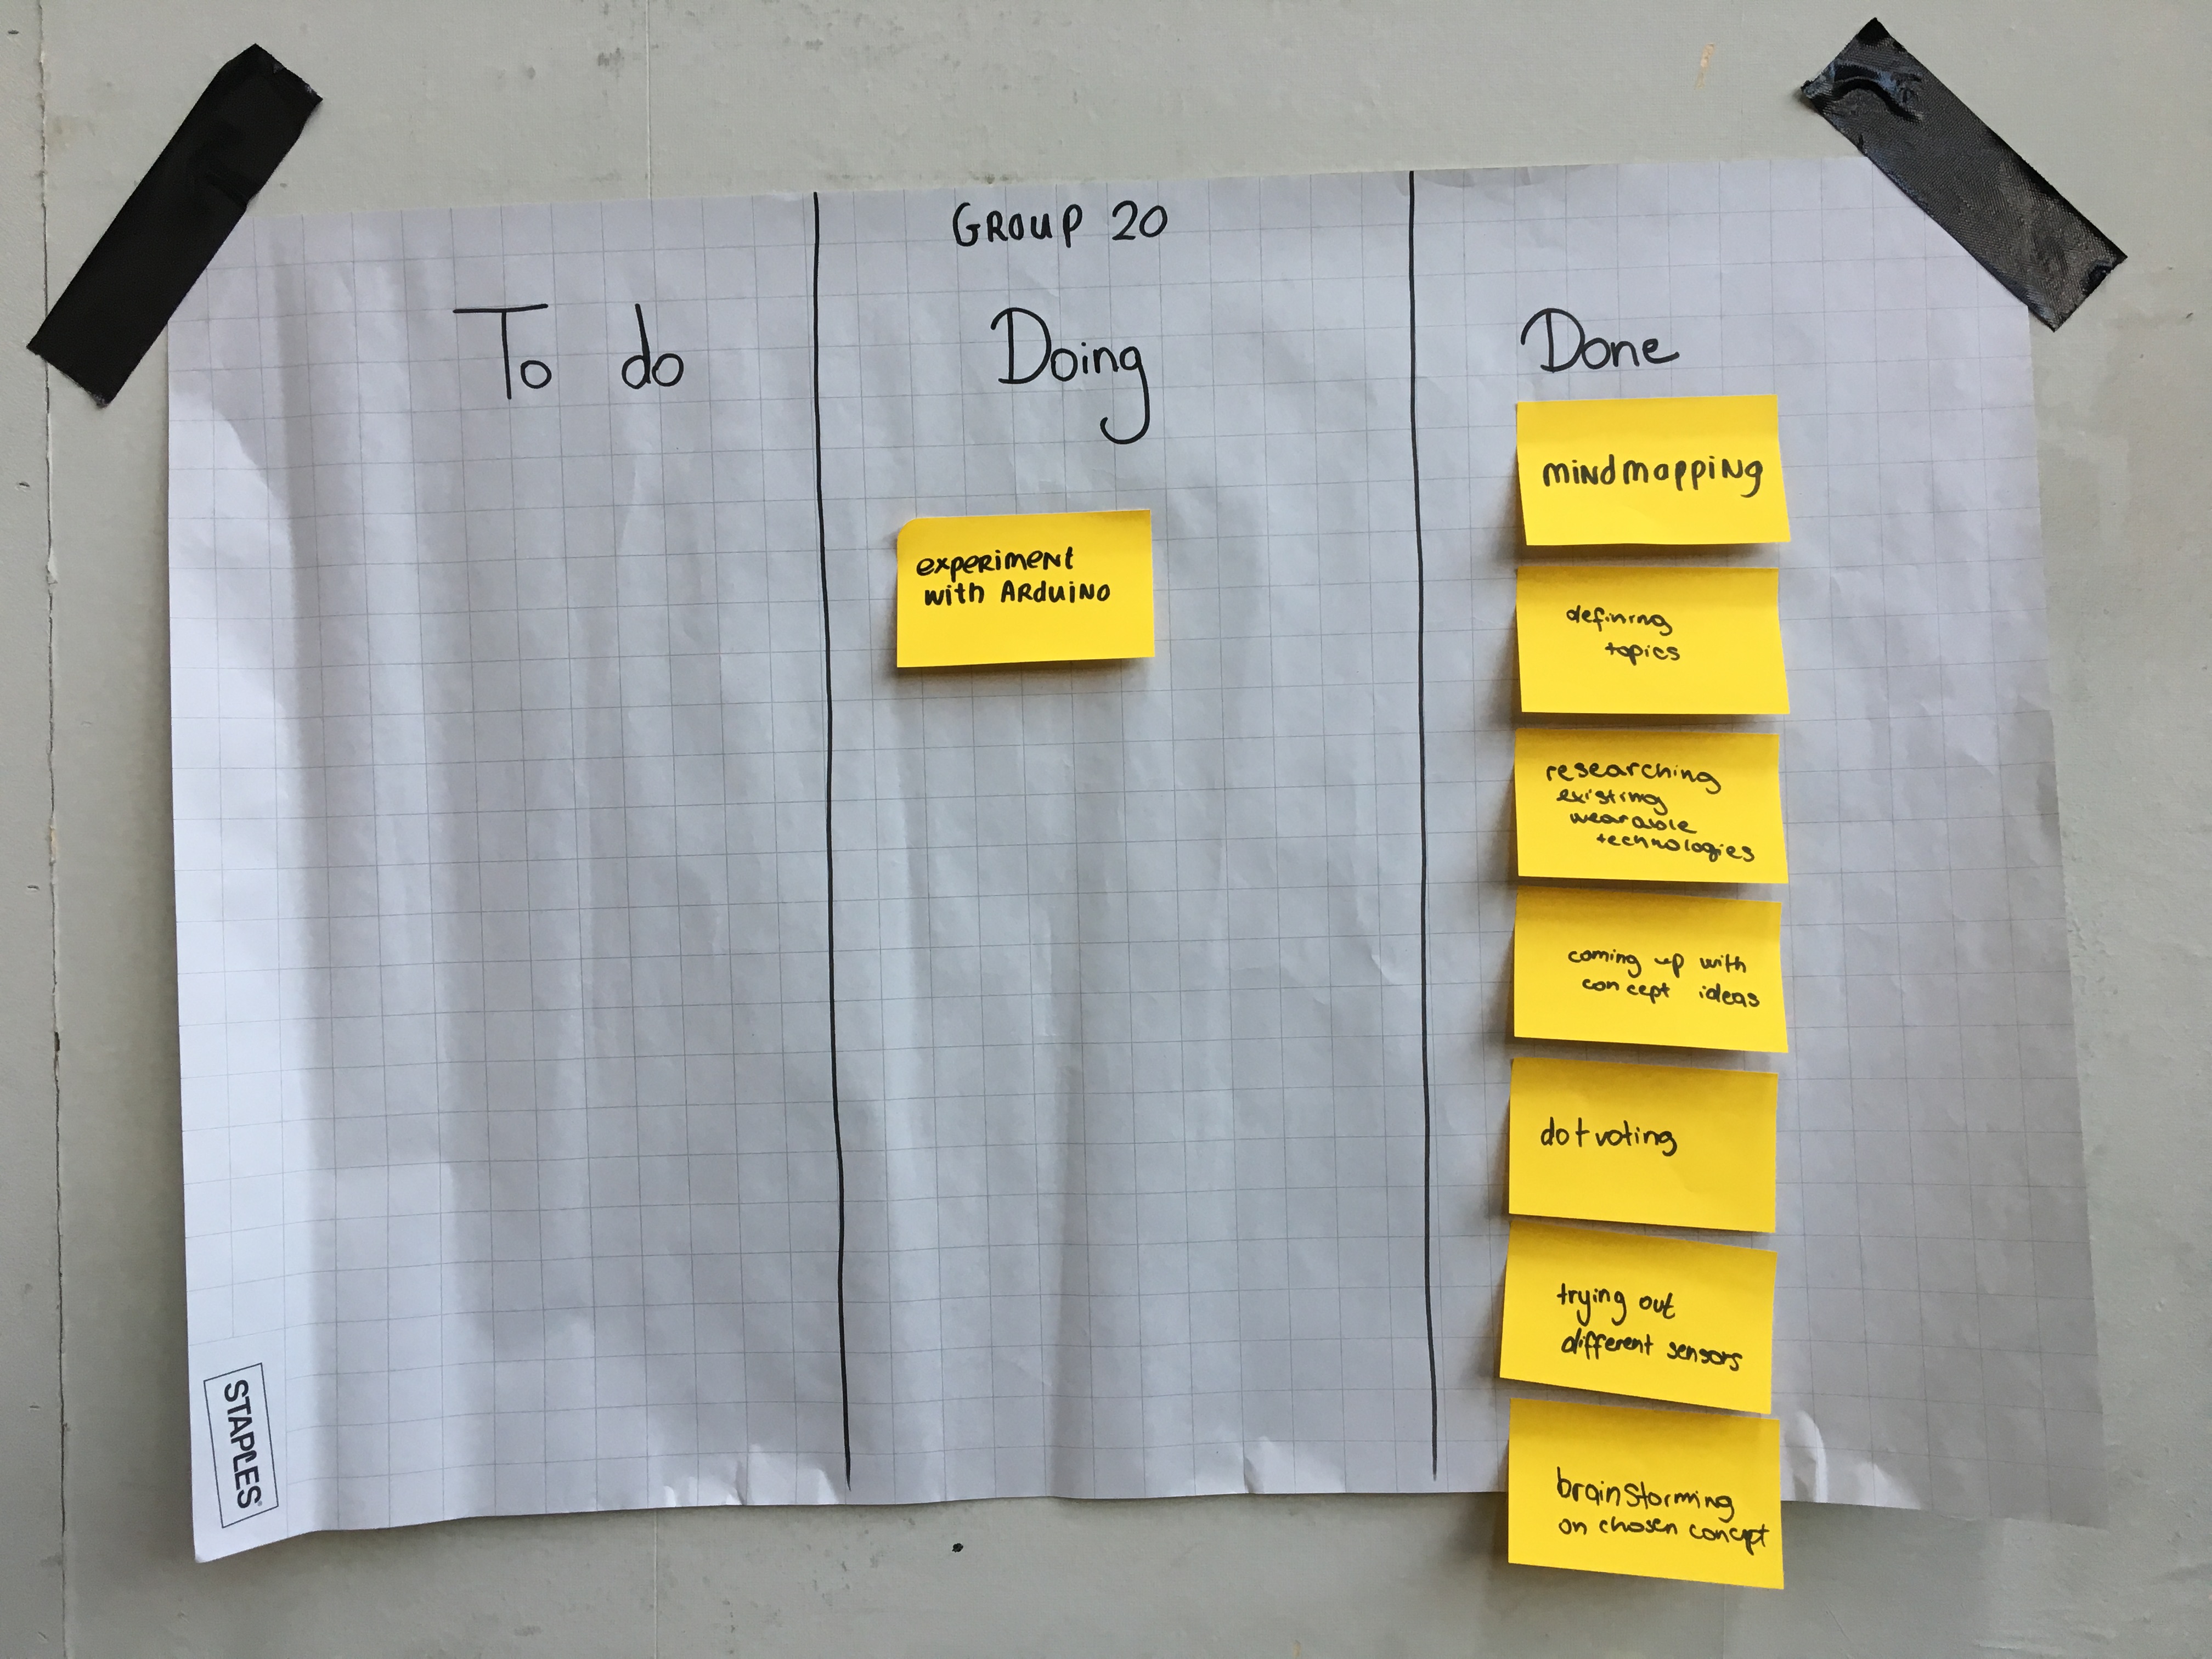 GROUP 20
To do
Doing
experiment
with Arduino
Done
mindmapping
defining
topics
researching
existing
wearable
technologies
coming up with
concept ideas
dotvoting
trying out
different sensors
brainstorming
on chosen concept
STAPLES